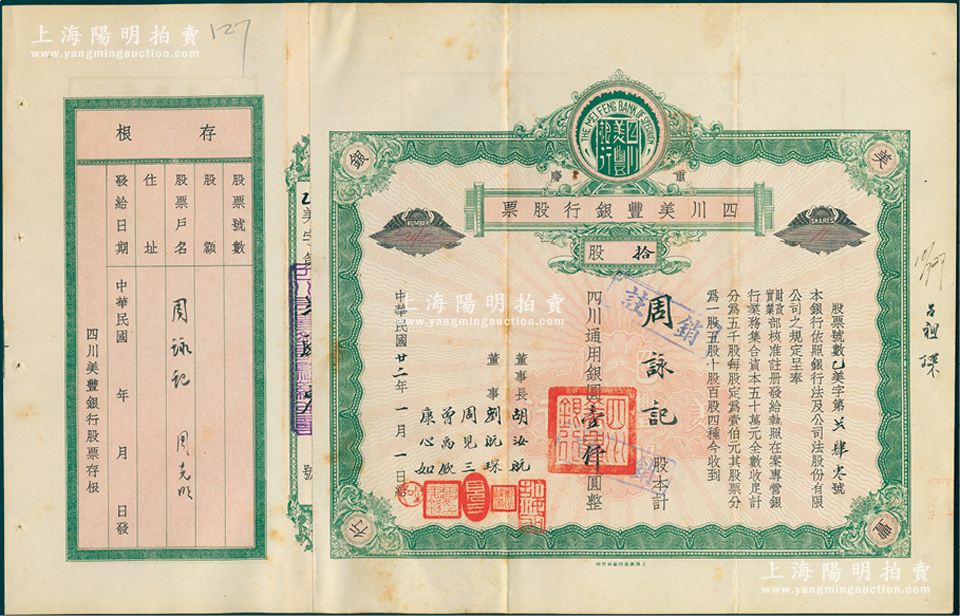 上海陽明拍賣
www.yangmingauction.com
127
THE MEI FENG BANK OF SZECHUEN
四川美豐銀行
重慶
美
豐
銀
行
四川美豐銀行股票
SHARES
10
NUMBER
拾股
股票號數乙美字第 肆 號
本銀行依照銀行法及公司法股份有限
公司之規定呈奉
財政實業部核准註册發給執照在案專營銀
行業務集合資本五十萬元全數收足計
分為五千股每股定為壹佰元其股票分
為一股五股十股百股四種今收到
周詠記
股本計
四川通用銀圓壹仟圓整
註銷
董事長 胡汝航
董事 劉航琛
周見三
曾禹欽
康心如
中華民國廿二年一月一日給
四川美豐銀行
乙美字第
號
存根
股票號數
股額
股票戶名 周詠記 周克明
住址
發給日期 中華民國 年 月 日發
四川美豐銀行股票存根
呂祖琛
上海陽明拍賣
www.yangmingauction.com
上海陽明拍賣
www.yangmingauction.com